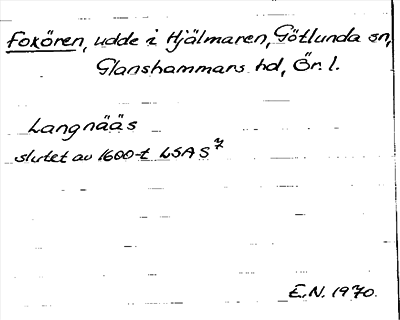 Foxören, udde i Hjälmaren, Götlunda sn,
Glanshammars hd, Ör. l.
Langnääs
slutet av 1600-t LSA S 7
E.N. 1970.